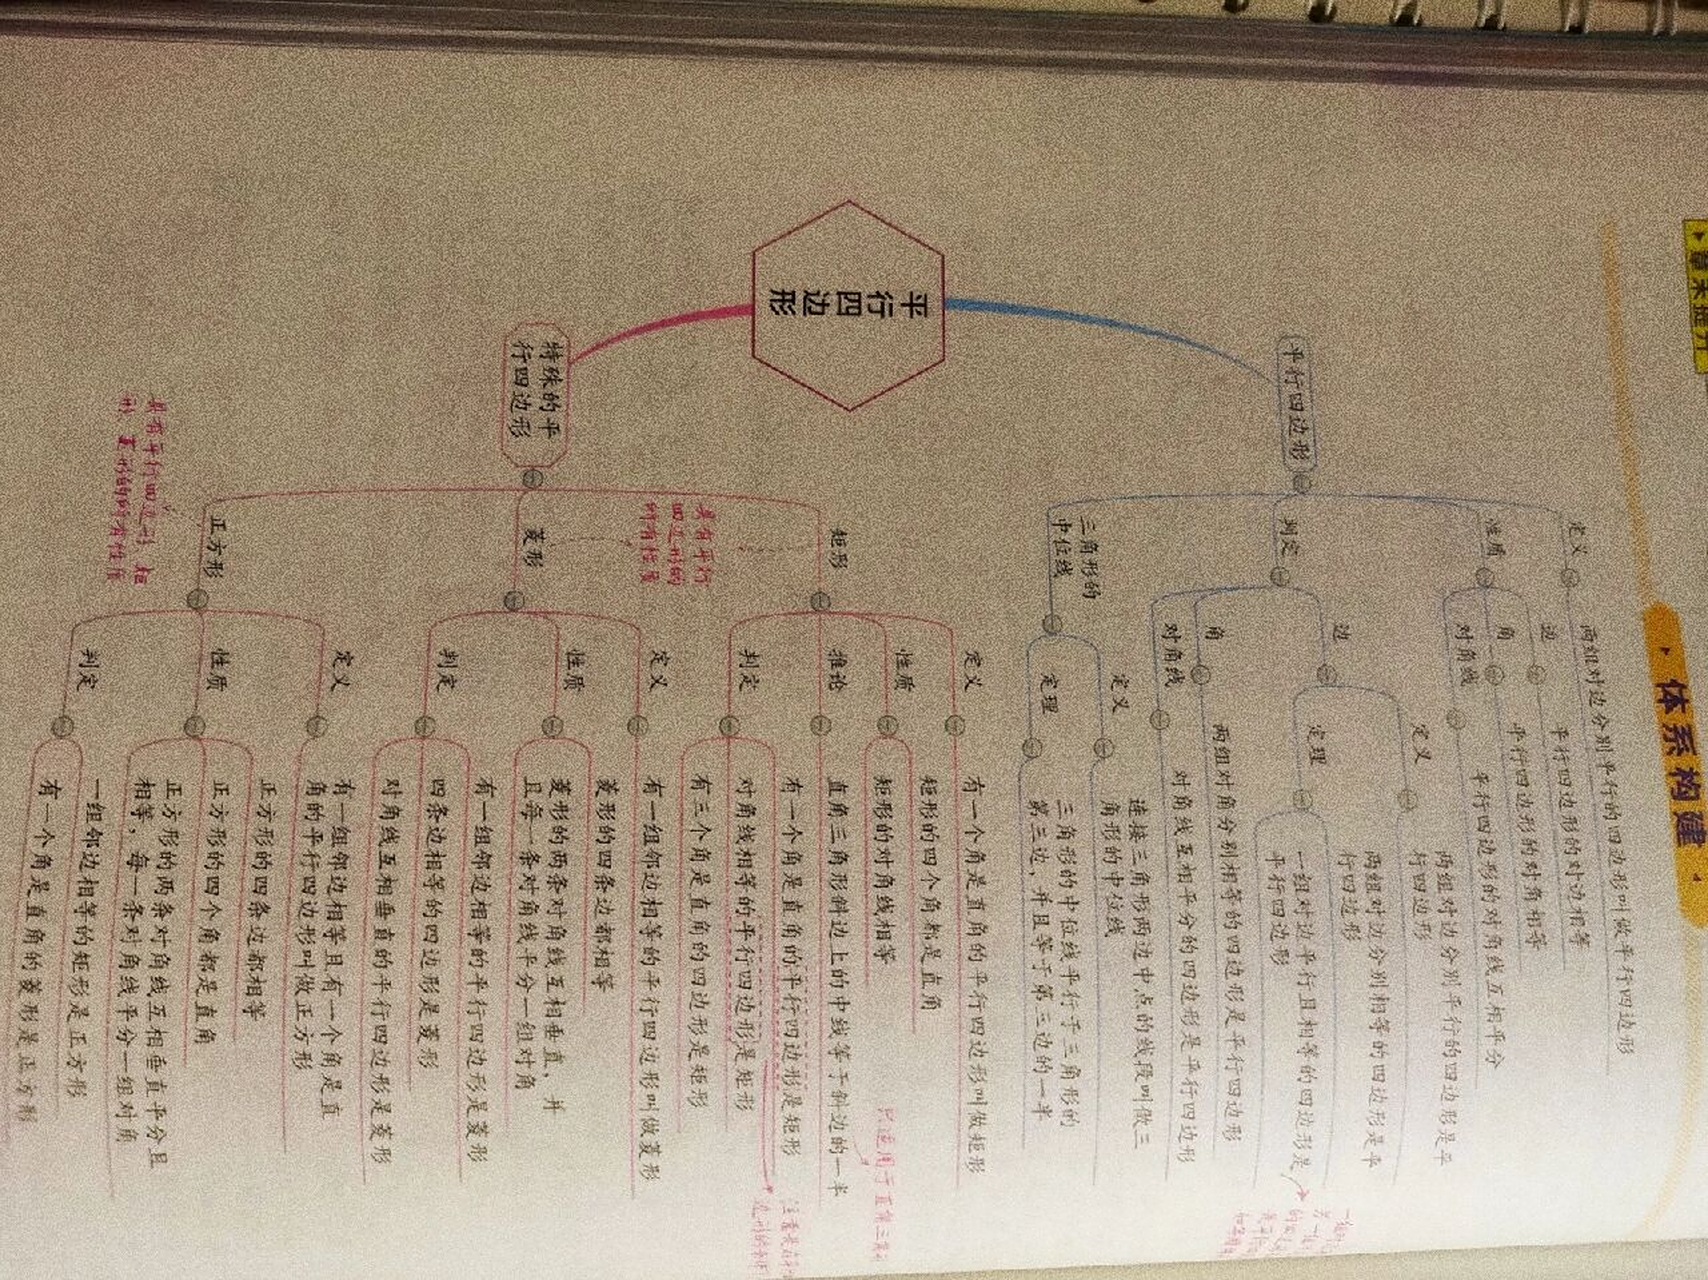 章末提升
体系构建
平行四边形
平行四边形
定义
两组对边分别平行的四边形叫做平行四边形
性质
边
平行四边形的对边相等
角
平行四边形的对角相等
对角线
平行四边形的对角线互相平分
判定
边
定义
两组对边分别平行的四边形是平
行四边形
定理
两组对边分别相等的四边形是平
行四边形
一组对边平行且相等的四边形是
平行四边形
角
两组对角分别相等的四边形是平行四边形
对角线
对角线互相平分的四边形是平行四边形
三角形的
中位线
定义
连接三角形两边中点的线段叫做三
角形的中位线
定理
三角形的中位线平行于三角形的
第三边,并且等于第三边的一半
特殊的平
行四边形
矩形
定义
有一个角是直角的平行四边形叫做矩形
性质
矩形的四个角都是直角
矩形的对角线相等
推论
直角三角形斜边上的中线等于斜边的一半
只适用于直角三角
判定
有一个角是直角的平行四边形是矩形
对角线相等的平行四边形是矩形
有三个角是直角的四边形是矩形
具有平行
四边形的
所有性质
菱形
定义
有一组邻边相等的平行四边形叫做菱形
性质
菱形的四条边都相等
菱形的两条对角线互相垂直,并
且每一条对角线平分一组对角
判定
有一组邻边相等的平行四边形是菱形
四条边相等的四边形是菱形
对角线互相垂直的平行四边形是菱形
正方形
定义
有一组邻边相等且有一个角是直
角的平行四边形叫做正方形
性质
正方形的四条边都相等
正方形的四个角都是直角
正方形的两条对角线互相垂直平分且
相等,每一条对角线平分一组对角
判定
一组邻边相等的矩形是正方形
有一个角是直角的菱形是正方形
具有平行四边形、矩
形、菱形的所有性质